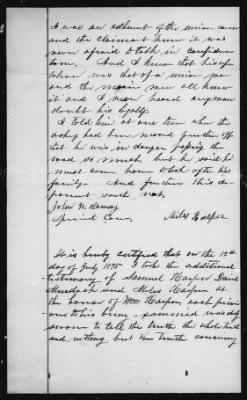 I was an adherent of the union cause
and the claimant knew it was
never afraid to talk in confidence
to me. And I know that his rep
tation was that of a union man
and the union men all knew
it and I never heard any man
doubt his loyalty.
I told him at one time when the
army had been moved further off
that he was in danger passing the
road so much but he said he
must come home to look after his
family. And further this de-
ponent saith not.
John W. Ramsay
Special Com. Miles Harper
It is hereby certified that on the 12th
day of July 1875 I took the additional
testimony of Samuel Harper David
Murdock and Miles Harper at
the house of Wm Harper each previ-
ous to his being examined was duly
sworn to tell the truth the whole truth
and nothing but the truth concerning